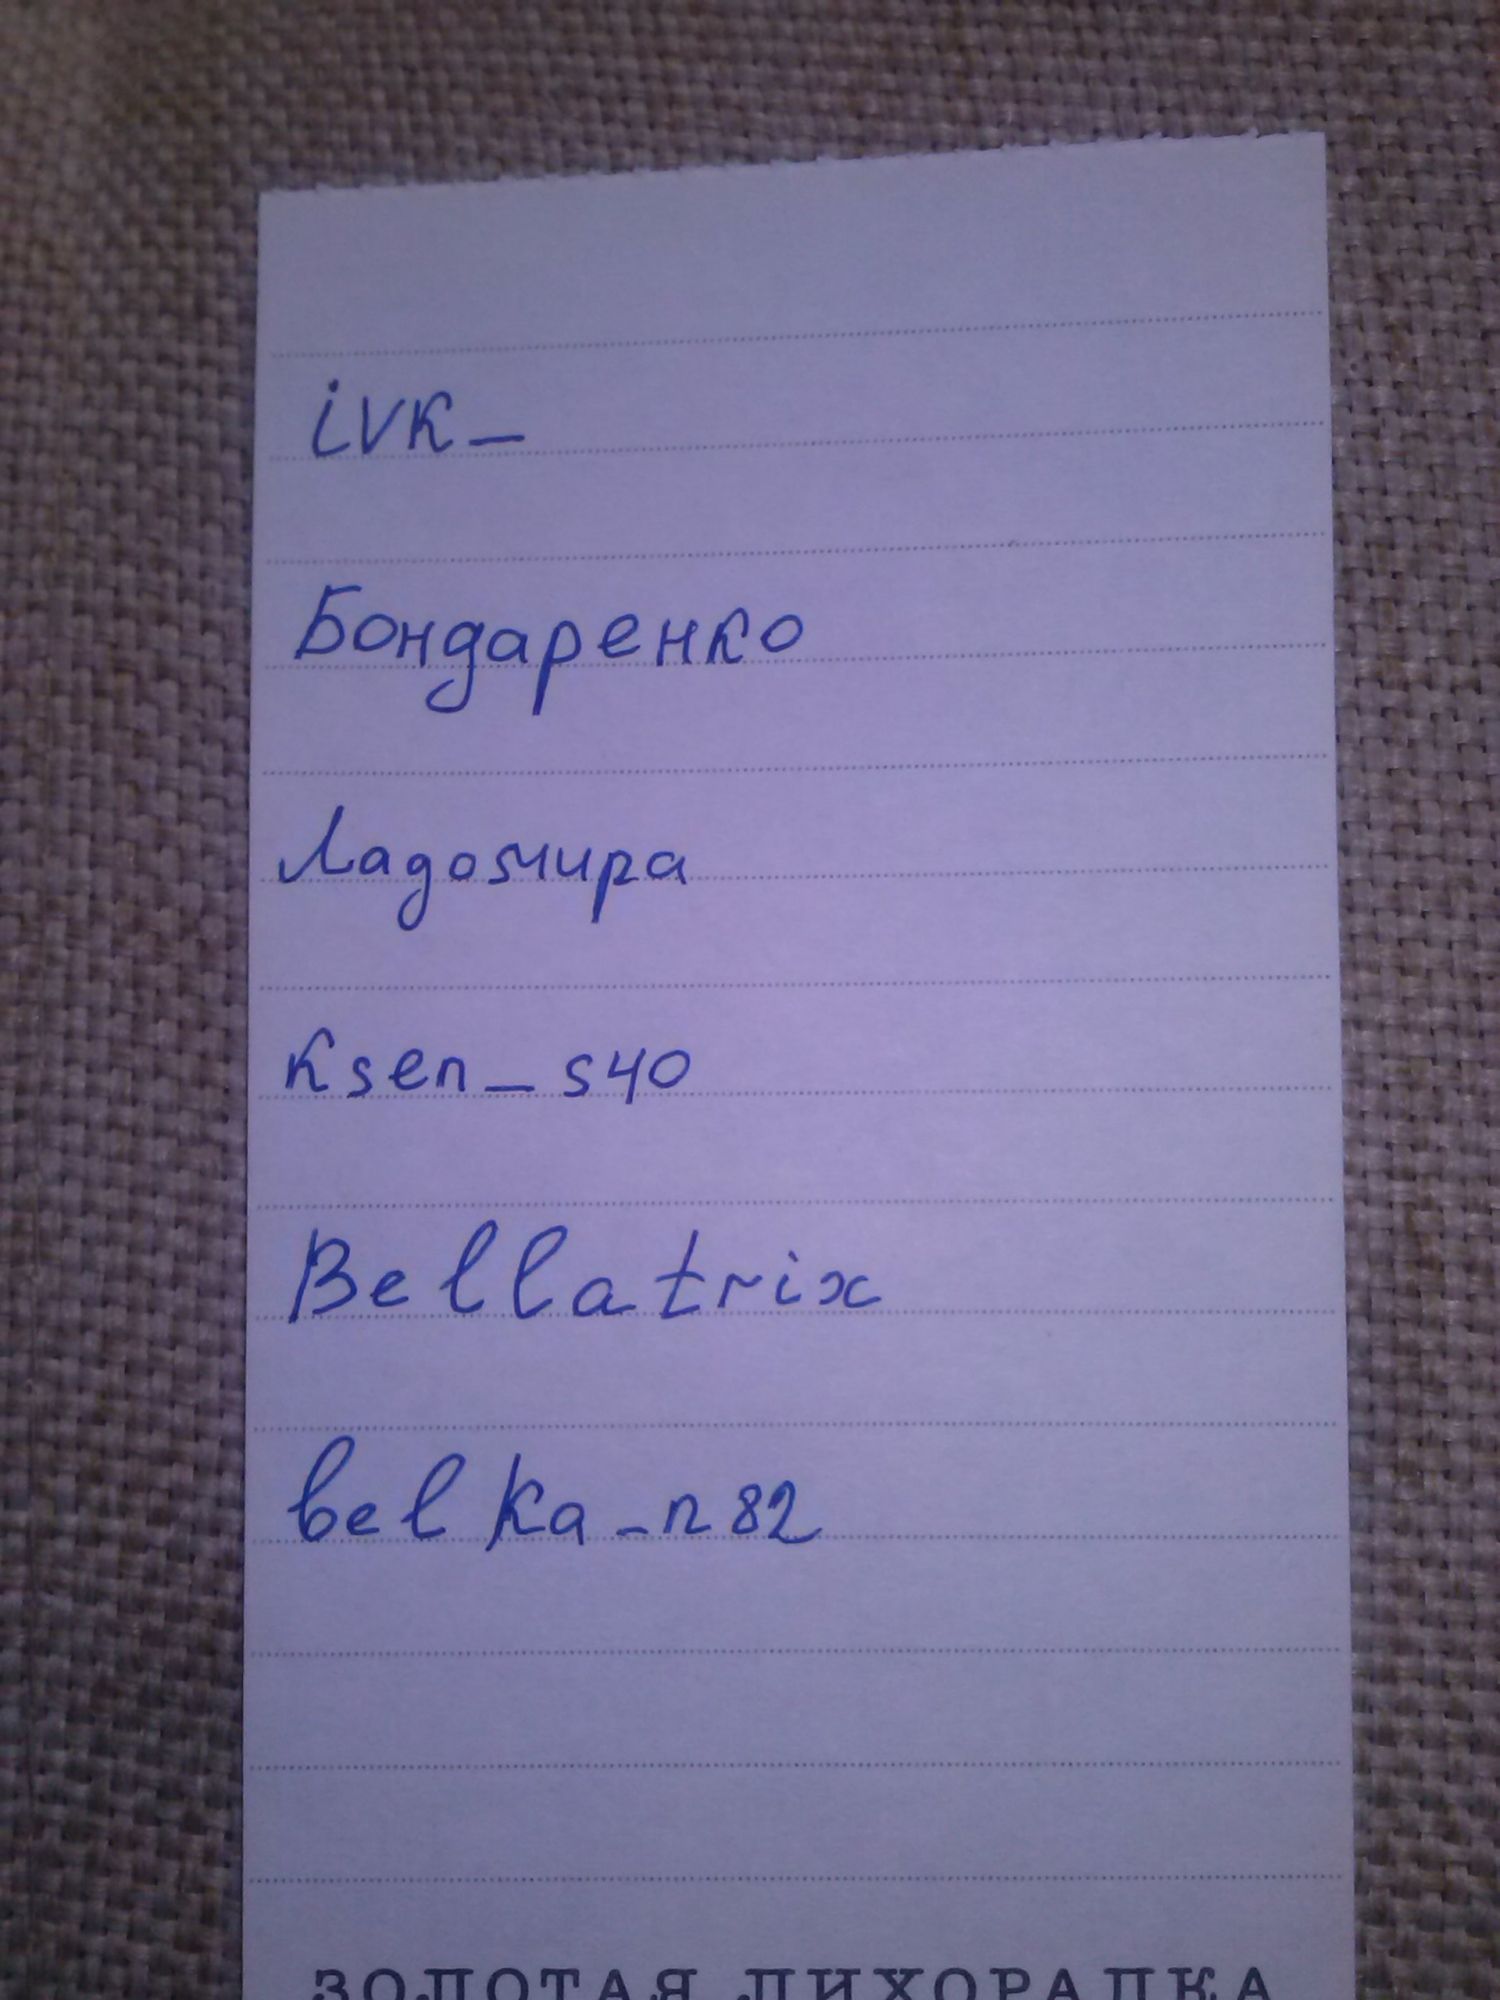 ivk_
Бондаренко
Ладомира
Ksen_s40
Bellatrix
belka_n82
ЗОЛОТАЯ ЛИХОРАДКА